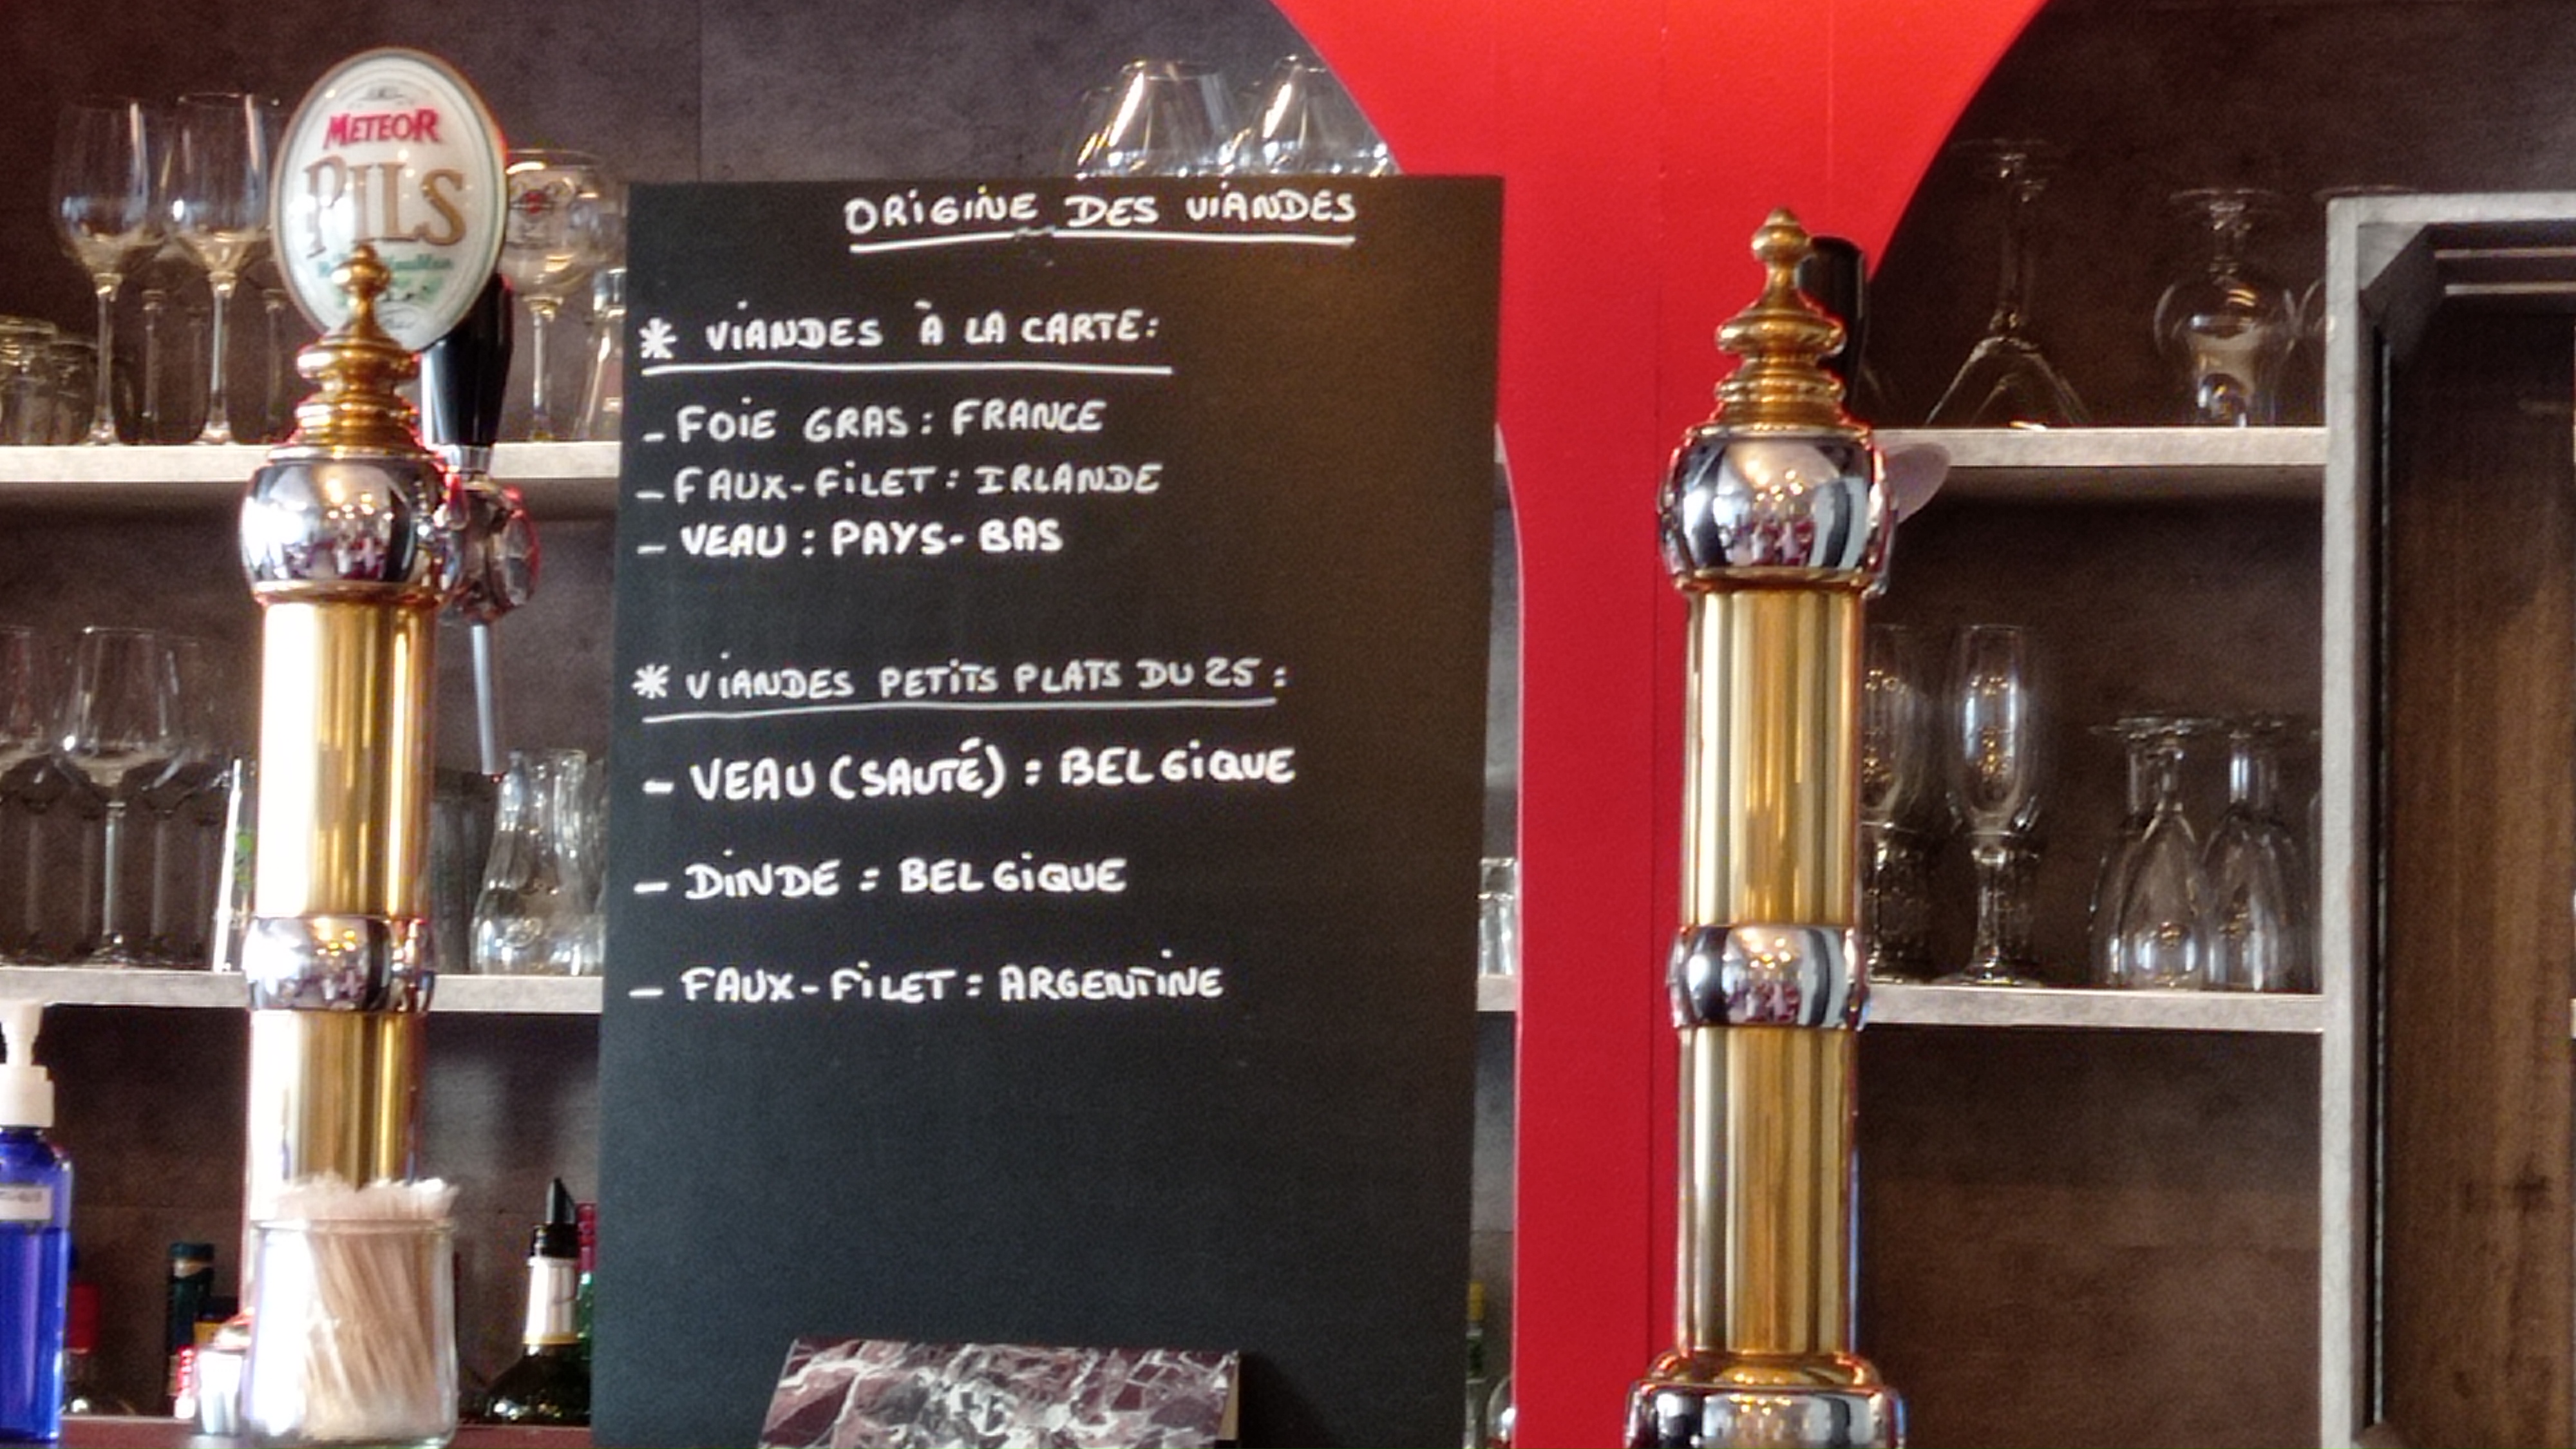 METEOR
PILS
ORIGINE DES VIANDES
* VIANDES À LA CARTE:
- FOIE GRAS : FRANCE
- FAUX-FILET : IRLANDE
- VEAU : PAYS-BAS
* VIANDES PETITS PLATS DU 25 :
- VEAU (SAUTÉ) : BELGIQUE
- DINDE : BELGIQUE
- FAUX-FILET : ARGENTINE